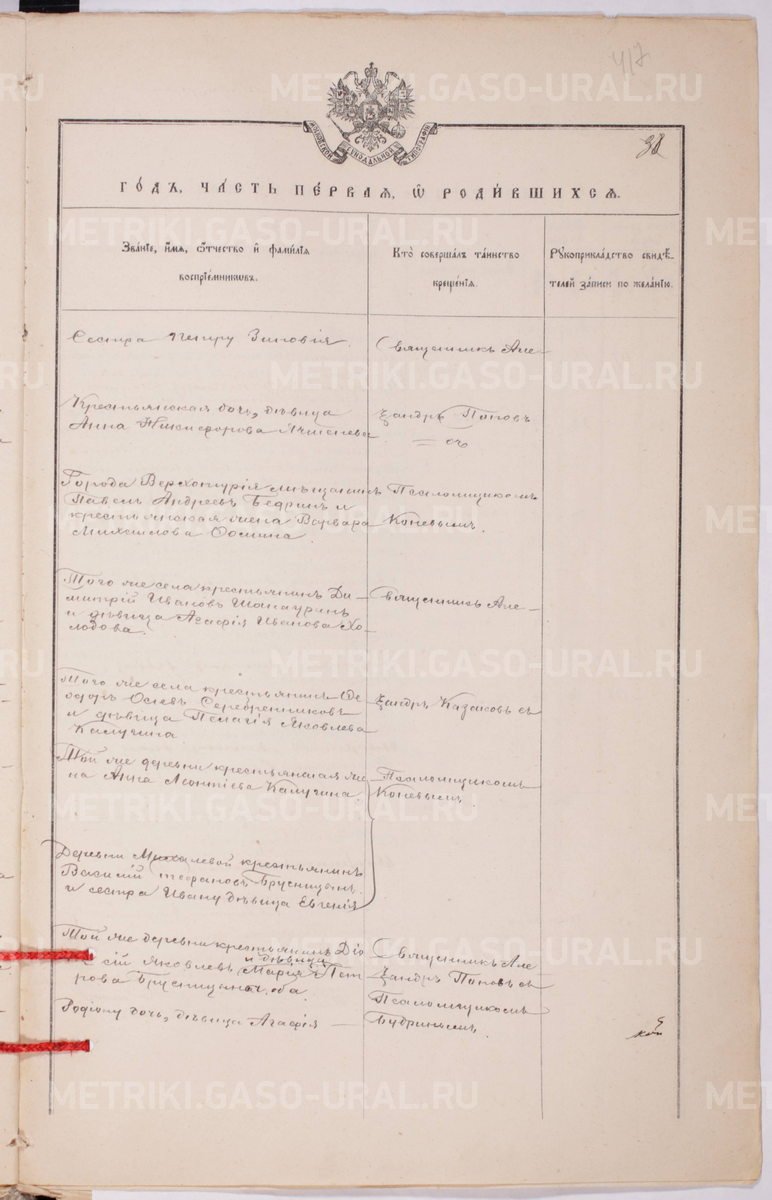 417
38
МОСКОВСКОЙ СУНОДАЛЬНОЙ ТИПОГРАФІИ
ГОДЪ, ЧАСТЬ ПЕ́РВАЯ, Ѡ РОДИ́ВШИХСЯ.
Зва́ніе, и́мя, ѻ҆́тчество и҆ фами́лія
воспріе́мниковъ.
Кто̀ соверша́лъ та́инство
креще́нія.
Рꙋкоприкла́дство свидѣ́-
телей за́писи по жела́нію.
Сестра Петру Зиновія.
Священникъ Але-
Крестьянская дочь, дѣвица
Анна Никифорова
ѯандръ Поповъ
= съ
Города Верхотурія мѣщанинъ
Павелъ Андреевъ Бедринъ и
крестьянская жена Варвара
Михеилова Фомина.
Псаломщикомъ
Коневымъ.
Того же села крестьянинъ Ди-
митрій Ивановъ Шапауринъ
и дѣвица Агафія Иванова Хо-
лодова.
Священникъ Але-
Того же села крестьянинъ Ѳе-
доръ Осіевъ Серебренниковъ
и дѣвица Пелагія Яковлева
Калугина
ѯандръ Казаковъ съ
Той же деревни крестьянская же-
на Анна Леонтіева Калугина.
Псаломщикомъ
Коневымъ.
Деревни Михалевой крестьянинъ
Василій Стефановъ Брусницынъ
и сестра Ивану дѣвица Евгенія
Той же деревни крестьянинъ Діо-
сій Яковлевъ и дѣвица Марія Пет-
рова Брусницына, оба.
Священникъ Але-
ѯандръ Поповъ съ
Родіону дочь, дѣвица Агафія —
Псаломщикомъ
Будринымъ.
METRIKI.GASO-URAL.RU